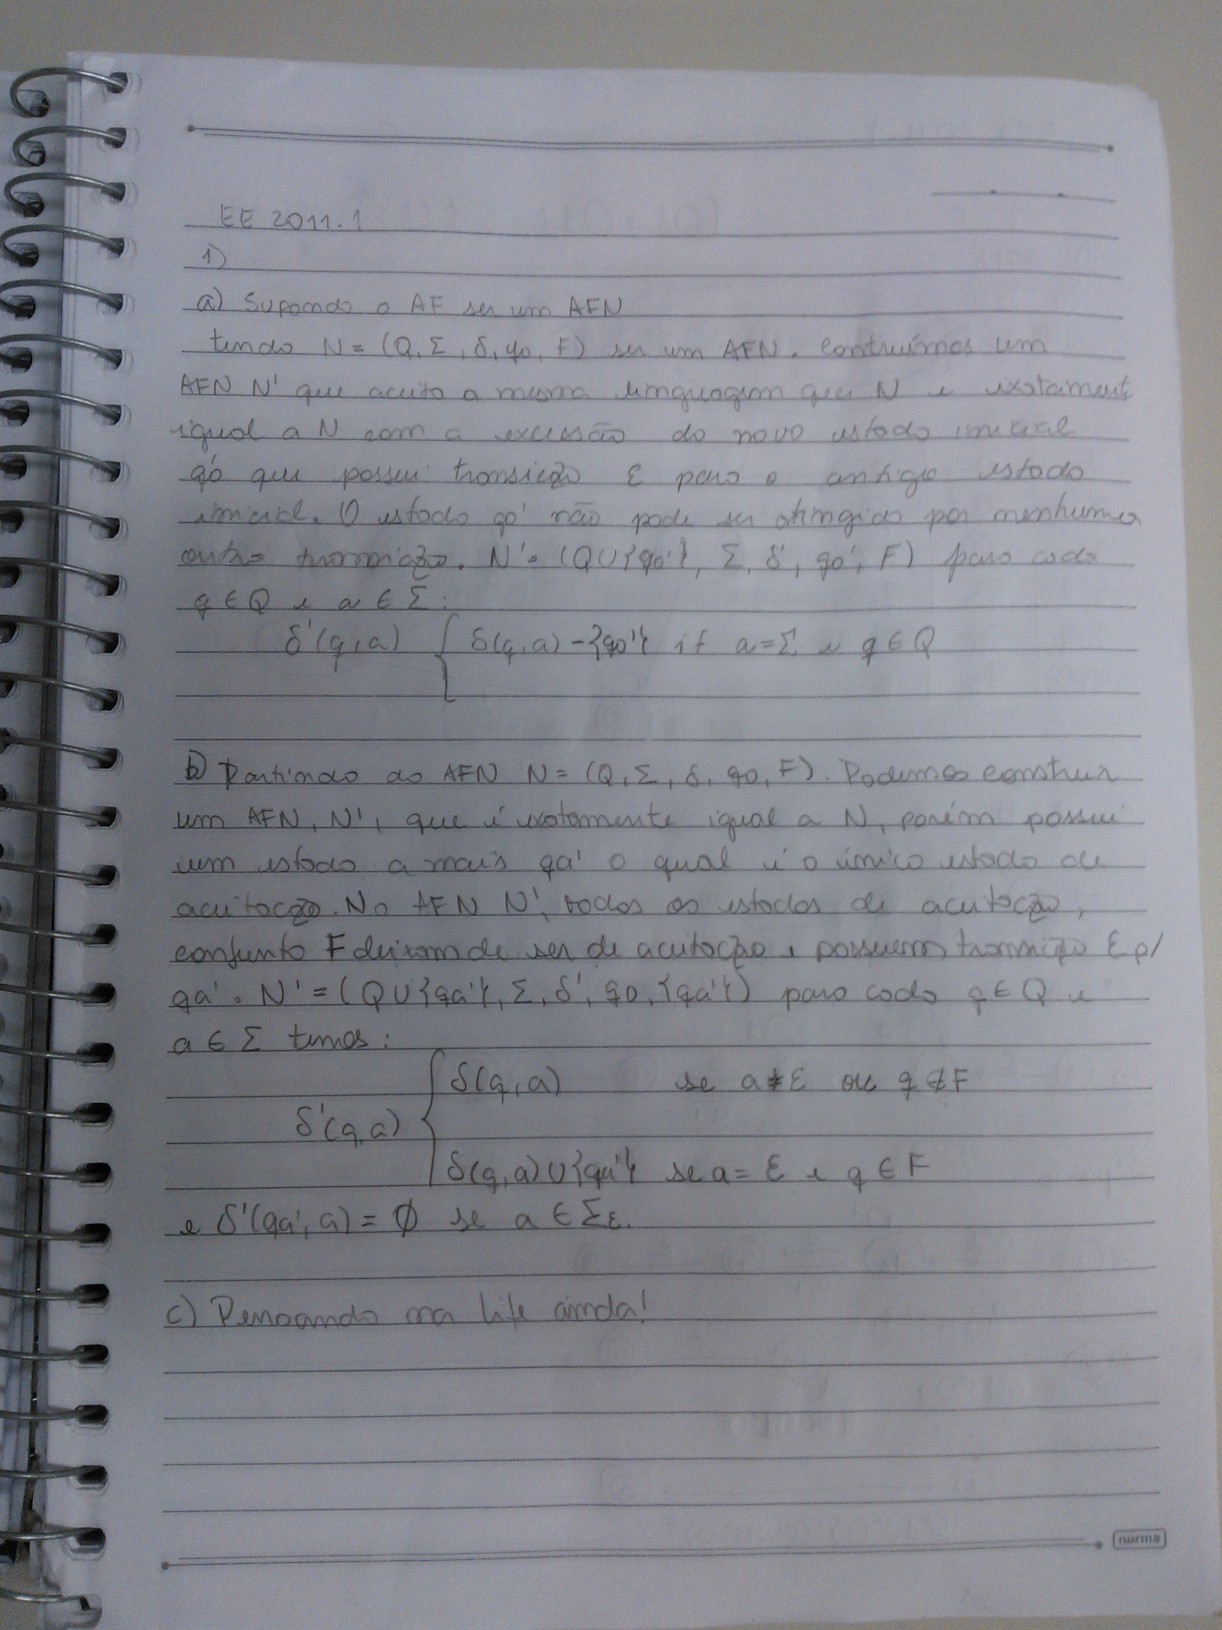 EE 2011.1
1)
a) Supondo o AF ser um AFN
tendo N = (Q, Σ, δ, q0, F) ser um AFN. Contruímos um
AFN N' que aceita a mesma linguagem que N e exatamente
igual a N com a excessão do novo estado inicial
q0' que possui transição ε para o antigo estado
inicial. O estado q0' não pode ser atingido por nenhuma
outra transição. N' = (Q∪{q0'}, Σ, δ', q0', F) para cada
q ∈ Q e a ∈ Σ:
δ'(q,a) { δ(q,a) - {q0'} if a=Σ e q ∈ Q
b) Partindo do AFN N = (Q, Σ, δ, q0, F). Podemos construir
um AFN, N', que é exatamente igual a N, porém possui
um estado a mais qa' o qual é o único estado de
aceitação. No AFN N', todos os estados de aceitação,
conjunto F deixam de ser de aceitação e possuem transição ε p/
qa'. N' = (Q∪{qa'}, Σ, δ', q0, {qa'}) para cada q ∈ Q e
a ∈ Σ temos:
δ(q,a) se a ≠ ε ou q ∉ F
δ'(q,a) {
δ(q,a)∪{qa'} se a = ε e q ∈ F
e δ'(qa', a) = ∅ se a ∈ Σε.
c) Pensando na life ainda!
norma